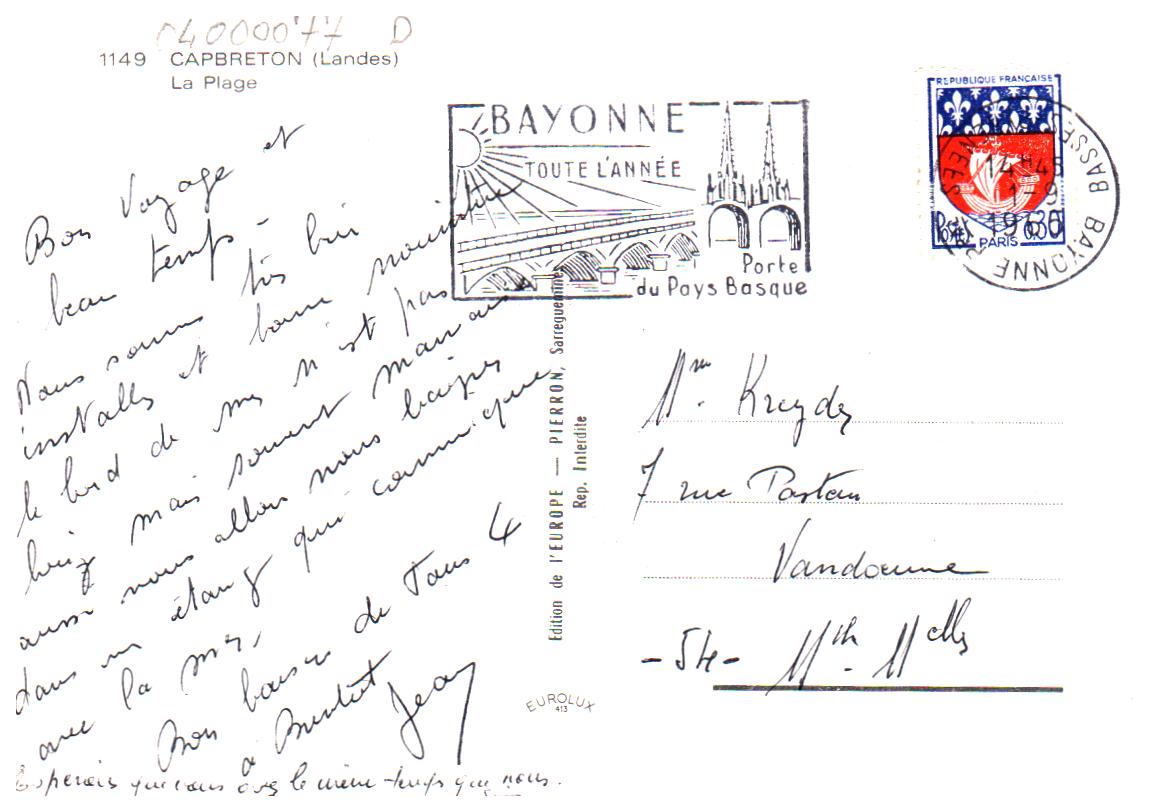 04000077 D
1149 CAPBRETON (Landes)
La Plage
Bon Voyage et
beau temps -
Nous sommes très bien
installés et bonne nourriture
le bord de mer n'est pas
mais souvent mauvais
aussi nous allons nous baigner
dans un étang qui communique
avec la mer,
Bons baisers de Tous 4
à Bientôt
Jean
que vous avez le même temps que nous.
BAYONNE
TOUTE L'ANNÉE
Porte
du Pays Basque
REPUBLIQUE FRANÇAISE
POSTES 0,30
PARIS
14 H 45
1-9
BAYONNE
Edition de l'EUROPE — PIERRON, Sarreguemines
Rep. Interdite
EUROLUX
413
Mme.
7 rue
- 54 - Mth. Melle